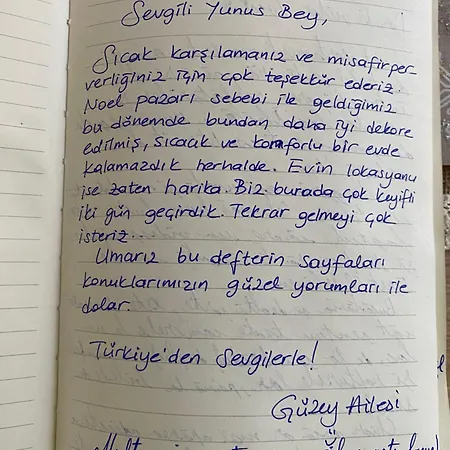 Sevgili Yunus Bey,
Sıcak karşılamanız ve misafirper
verliğiniz için çok teşekkür ederiz.
Noel pazarı sebebi ile geldiğimiz
bu dönemde bundan daha iyi dekore
edilmiş, sıcacık ve konforlu bir evde
kalamazdık herhalde. Evin lokasyonu
ise zaten harika. Biz burada çok keyifli
iki gün geçirdik. Tekrar gelmeyi çok
isteriz...
Umarız bu defterin sayfaları
konuklarımızın güzel yorumları ile
dolar.
Türkiye'den Sevgilerle!
Güzey Ailesi